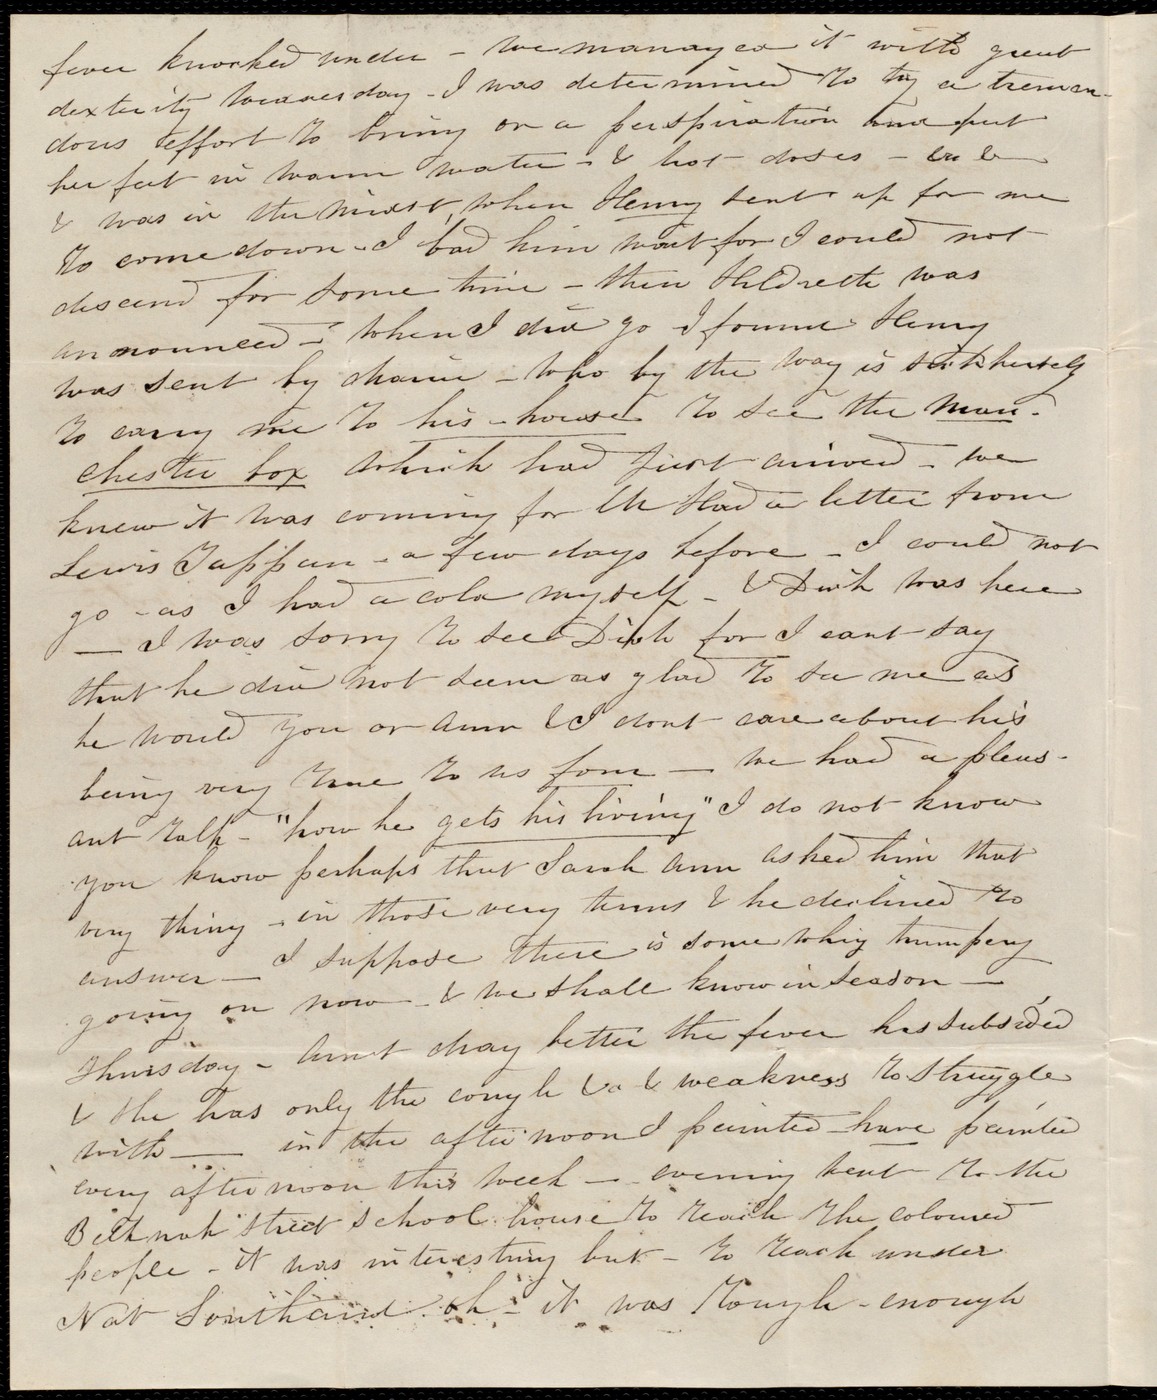 fever knocked under - we managed it with great
dexterity Wednesday - I was determined to try a tremen-
dous effort to bring on a perspiration and put
her feet in warm water - & hot doses -
& was in the midst, when Henry sent up for me
to come down - I bad him wait for I could not
descend for some time - then Hildreth was
announced - When I did go I found Henry
was sent by Maria - who by the way is sick herself
to carry me to his house to see the Man-
chester box which had just arrived - we
knew it was coming for We Had a letter from
Lewis Tappan - a few days before - I could not
go - as I had a cold myself - & Dick was here
— I was sorry to see Dick for I cant say
that he did not seem as glad to see me as
he would you or Ann & I dont care about his
being very true to us four — we had a pleas-
ant talk - "how he gets his living" I do not know
you know perhaps that Sarah Ann asked him that
very thing - in those very terms & he declined to
answer — I suppose there is some whig trumpery
going on now - & we shall know in season —
Thursday - Aunt Mary better the fever has subsided
& she has only the cough & a & weakness to struggle
with — in the afternoon I painted have painted
every afternoon this week — evening went to the
Belknap Street school house to teach the coloured
people - it was interesting but - to teach under
Nat Southard oh - it was tough - enough